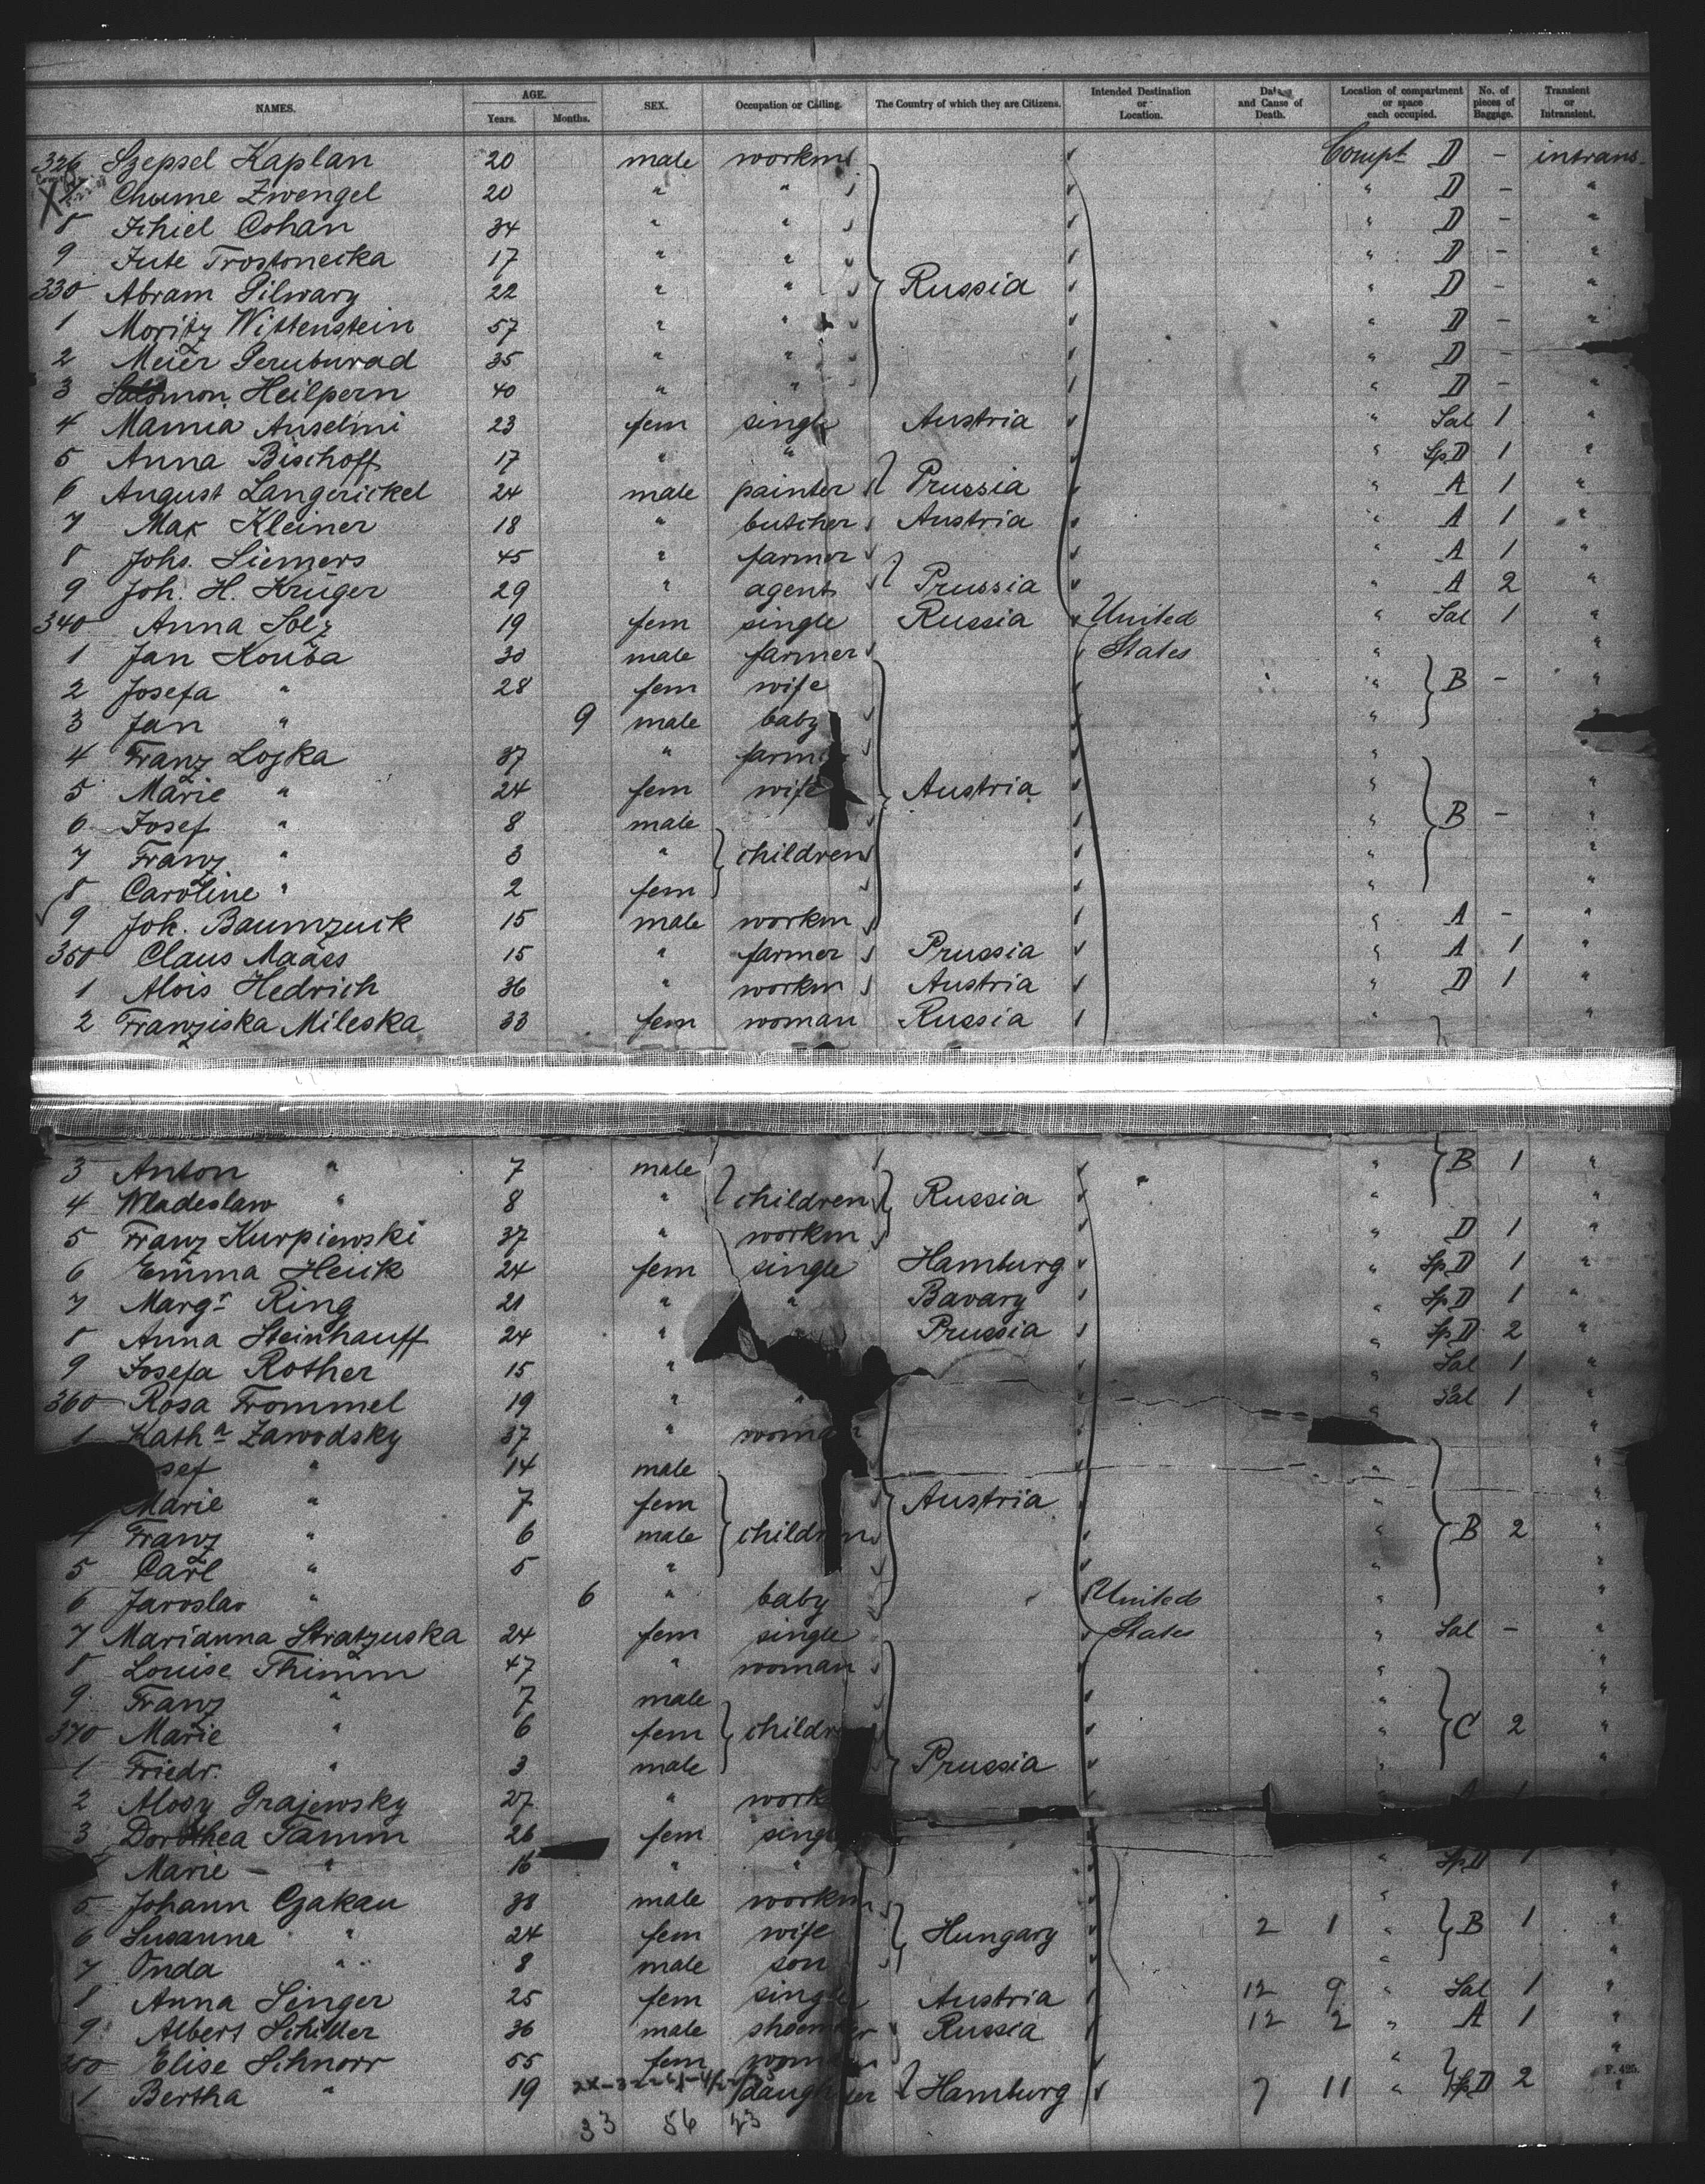 NAMES. AGE. Years. Months. SEX. Occupation or Calling. The Country of which they are Citizens. Intended Destination or Location. Date and Cause of Death. Location of compartment or space each occupied. No. of pieces of Baggage. Transient or Intransient.
326 Szepsel Kaplan 20 male workm Compt D - intrans-
Chume Zwengel 20 " " " D - "
8 Jchiel Cohan 34 " " " D - "
9 Jute Trostonecka 17 " " " D - "
330 Abram Pilwary 22 " " Russia " D - "
1 Moritz Wittenstein 57 " " " D - "
2 Meier Peruburad 35 " " " D - "
3 Salomon Heilpern 40 " " " D - "
4 Mamia Anselmi 23 fem single Austria " Sal 1 "
5 Anna Bischoff 17 " " " Sp D 1 "
6 August Langerickel 24 male painter Prussia A 1 "
7 Max Kleiner 18 " butcher Austria " A 1 "
8 Johs. Siemers 45 " farmer " A 1 "
9 Joh. H. Krüger 29 " agent Prussia " A 2 "
340 Anna Solz 19 fem single Russia United " Sal 1 "
1 Jan Kouba 30 male farmer States " "
2 Josefa " 28 fem wife " B - "
3 Jan " 9 male baby "
4 Franz Lojka 37 " farm "
5 Marie " 24 fem wife Austria " "
6 Josef " 8 male " B - "
7 Franz " 3 " children " "
8 Caroline " 2 fem " "
9 Joh. Baumzuik 15 male workm " A - "
350 Claus Maass 15 " farmer Prussia " A 1 "
1 Alois Hedrich 36 " workm Austria " D 1 "
2 Franziska Mileska 33 fem woman Russia "
3 Anton " 7 male " B 1 "
4 Wladeslaw " 8 " children Russia " "
5 Franz Kurpiewski 37 " workm " D 1 "
6 Emma Heuk 24 fem single Hamburg " Sp D 1 "
7 Margr Ring 21 " " Bavary " Sp D 1 "
8 Anna Steinhauff 24 " Prussia " Sp D 2 "
9 Josefa Rother 15 " " Sal 1 "
360 Rosa Frommel 19 " " " Sal 1 "
1 Katha Zawodsky 37 " woman "
sef " 14 male " "
Marie " 7 fem Austria " "
4 Franz " 6 male children " B 2 "
5 Carl " 5 " " "
6 Jaroslav " 6 " baby United " "
7 Marianna Stratzuska 24 fem single States " Sal - "
8 Louise Thimm 47 " woman " "
9 Franz " 7 male " "
370 Marie " 6 fem childr " C 2 "
1 Friedr. " 3 male Prussia " "
2 Alosy Grajewsky 27 " work
3 Dorothea Tamm 26 fem singl
Marie - " 16 " " " Sp D 1
5 Johann Czakau 38 male workm " "
6 Susanna " 24 fem wife Hungary 2 1 " B 1 "
7 Onda " 8 male son " "
8 Anna Singer 25 fem single Austria 12 9 " Sal 1 "
9 Albert Schiller 36 male shoem er Russia 12 2 " A 1 "
380 Elise Schnorr 55 fem wom " "
1 Bertha " 19 daugh er Hamburg 7 11 " Sp D 2 "
P. 425.
33 56 23